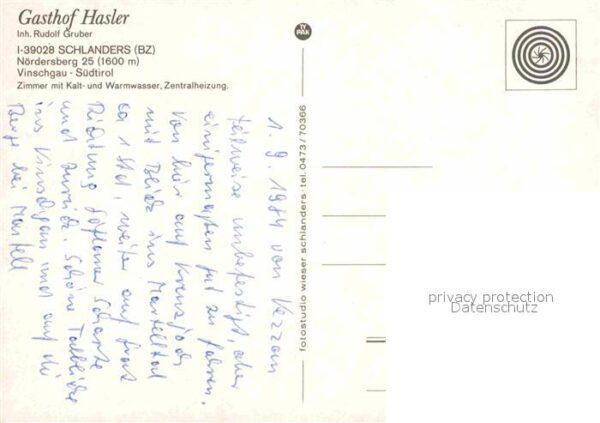 Gasthof Hasler
Inh. Rudolf Gruber
I-39028 SCHLANDERS (BZ)
Nördersberg 25 (1600 m)
Vinschgau - Südtirol
Zimmer mit Kalt- und Warmwasser, Zentralheizung.
TV
PAK
1. 9. 1984 von Vezzan
teilweise unbefestigt, aber
einigermaßen gut zu fahren.
Von hier auf Kreuzjoch
mit Blick ins Martelltal
ca 1 Std, weiter auf
Richtung Göflaner Scharte
und zurück. Schöne Talblicke
ins Vinschgau und auf die
Berge bei Martell
fotostudio wieser schlanders · tel. 0473/70366
privacy protection
Datenschutz